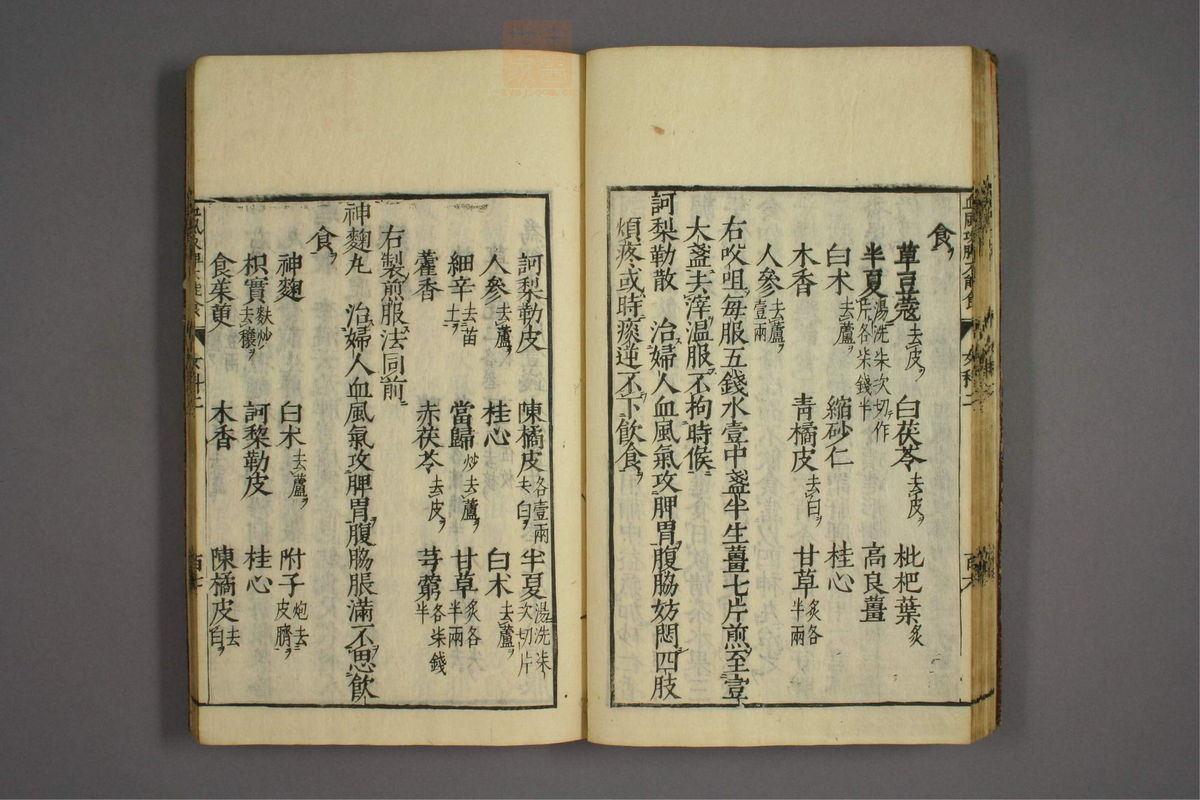 食ヲ
草豆蔻去皮ヲ 白茯苓去皮ヲ 枇杷葉炙
半夏湯洗柒次切作片各柒錢半 高良薑
白朮去蘆ヲ 縮砂仁 桂心
木香 青橘皮去白ヲ 甘草炙各半兩
人參去蘆ヲ壹兩
右㕮咀毎服五錢水壹中盞半生薑七片煎至壹
大盞去滓温服不拘時候
訶梨勒散 治婦人血風氣攻脾胃腹脇妨悶四肢
煩疼或時痰逆不下飲食
訶梨勒皮 陳橘皮去白ヲ各壹兩 半夏湯洗柒次切片
人參去蘆ヲ 桂心 白朮去蘆ヲ
細辛去苗土 當歸去蘆ヲ炒 甘草炙各半兩
藿香 赤茯苓去皮ヲ 芎藭各柒錢半
右製煎服法同前
神麴丸 治婦人血風氣攻脾胃腹脇脹滿不思飲
食ヲ
神麴 白朮去蘆ヲ 附子炮去皮臍ヲ
枳實麩炒去穰ヲ 訶黎勒皮 桂心
食茱萸 木香 陳橘皮去白ヲ
女科二
百六
百七